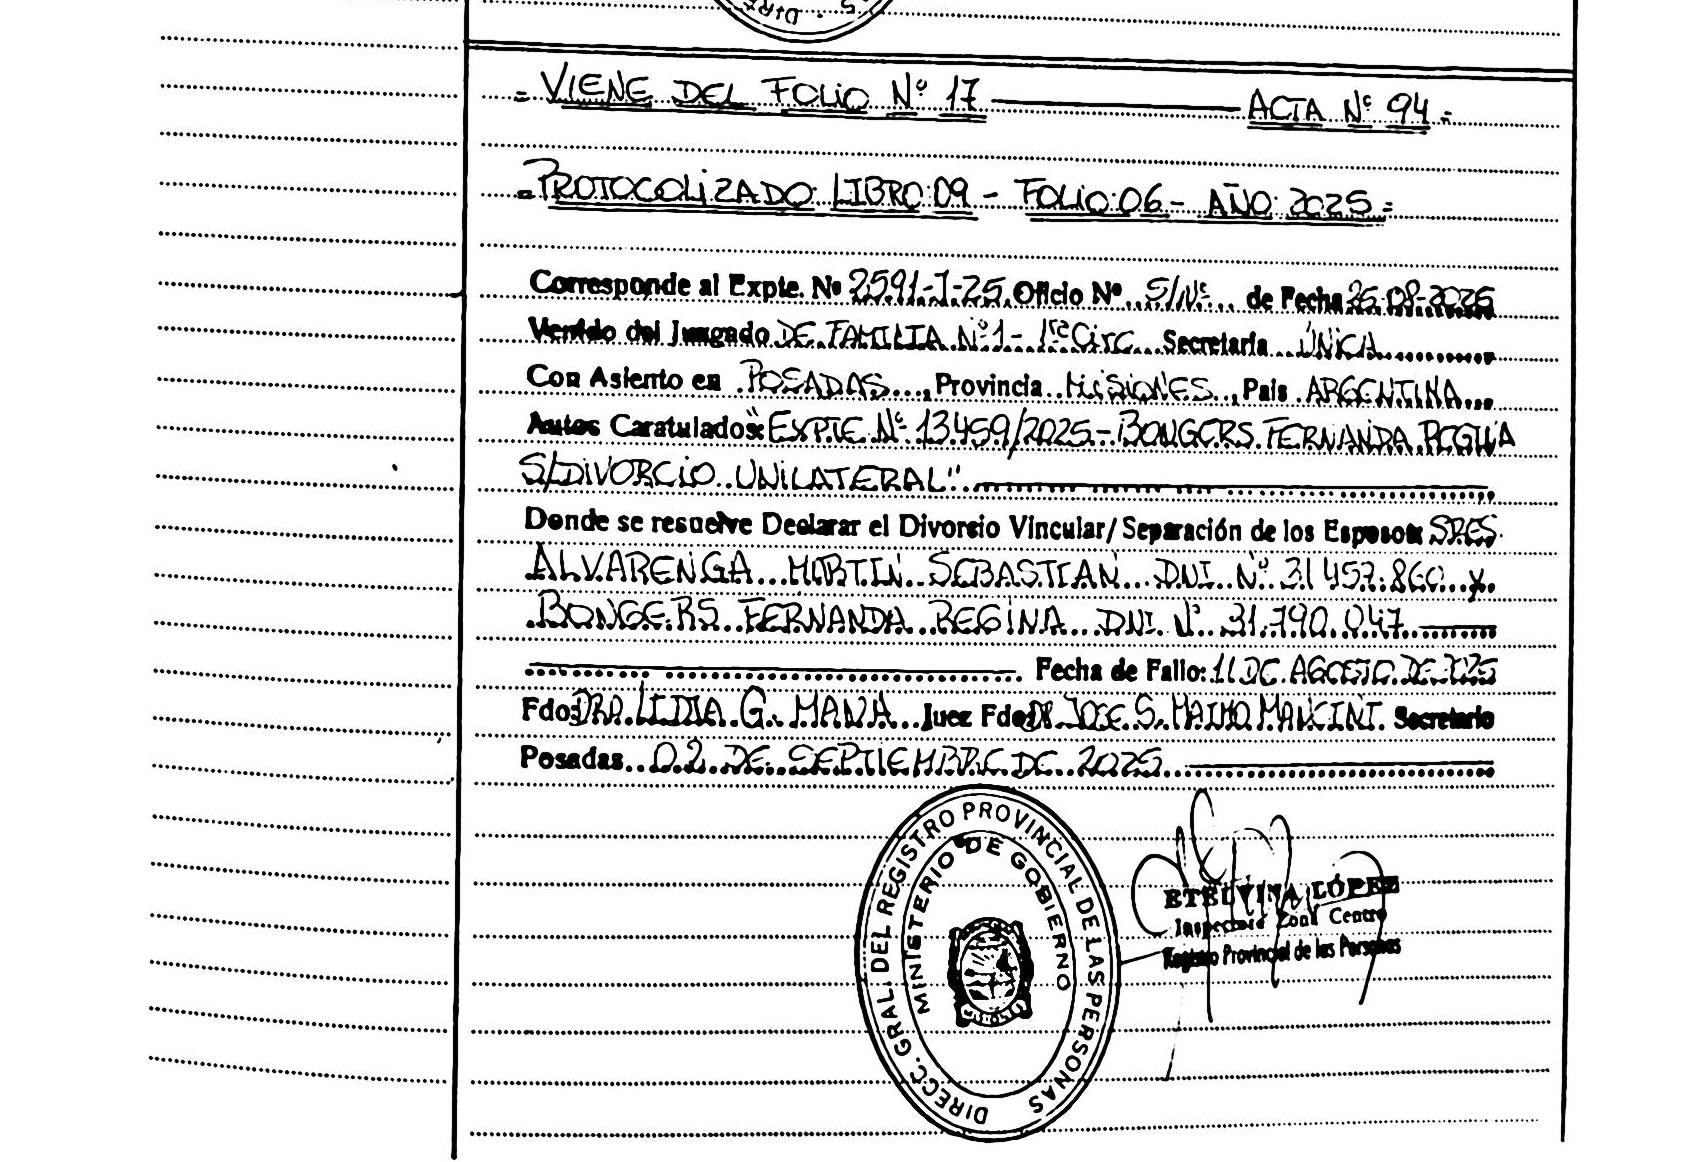 = VIENE DEL FOLIO Nº 17 ACTA Nº 94 =
= PROTOCOLIZADO: LIBRO: 09 - FOLIO: 06 - AÑO: 2025 =
Corresponde al Expte. Nº 2591-J-25 Oficio Nº S/Nº de Fecha 26-08-2025
Venido del Juzgado DE FAMILIA Nº 1 - 1ra Circ. Secretaria ÚNICA
Con Asiento en POSADAS, Provincia MISIONES, Pais ARGENTINA
Autos Caratulados: "EXPTE Nº 13459/2025 - BONGERS FERNANDA REGINA
S/DIVORCIO UNILATERAL"
Donde se resuelve Declarar el Divorcio Vincular/Separación de los Esposos: SRES.
ALVARENGA MARTIN SEBASTIAN DNI Nº 31.457.860 y
BONGERS FERNANDA REGINA DNI Nº 31.790.047
Fecha de Fallo: 11 DE AGOSTO DE 2025
Fdo: DRA. LIDIA G. MANA Juez Fdo: DR JOSE S. MAIMO MANCINI Secretario
Posadas 02 DE SEPTIEMBRE DE 2025
DIRECC. GRAL. DEL REGISTRO PROVINCIAL DE LAS PERSONAS
MINISTERIO DE GOBIERNO
ETELVINA LÓPEZ
Inspectora Zona Centro
Registro Provincial de las Personas